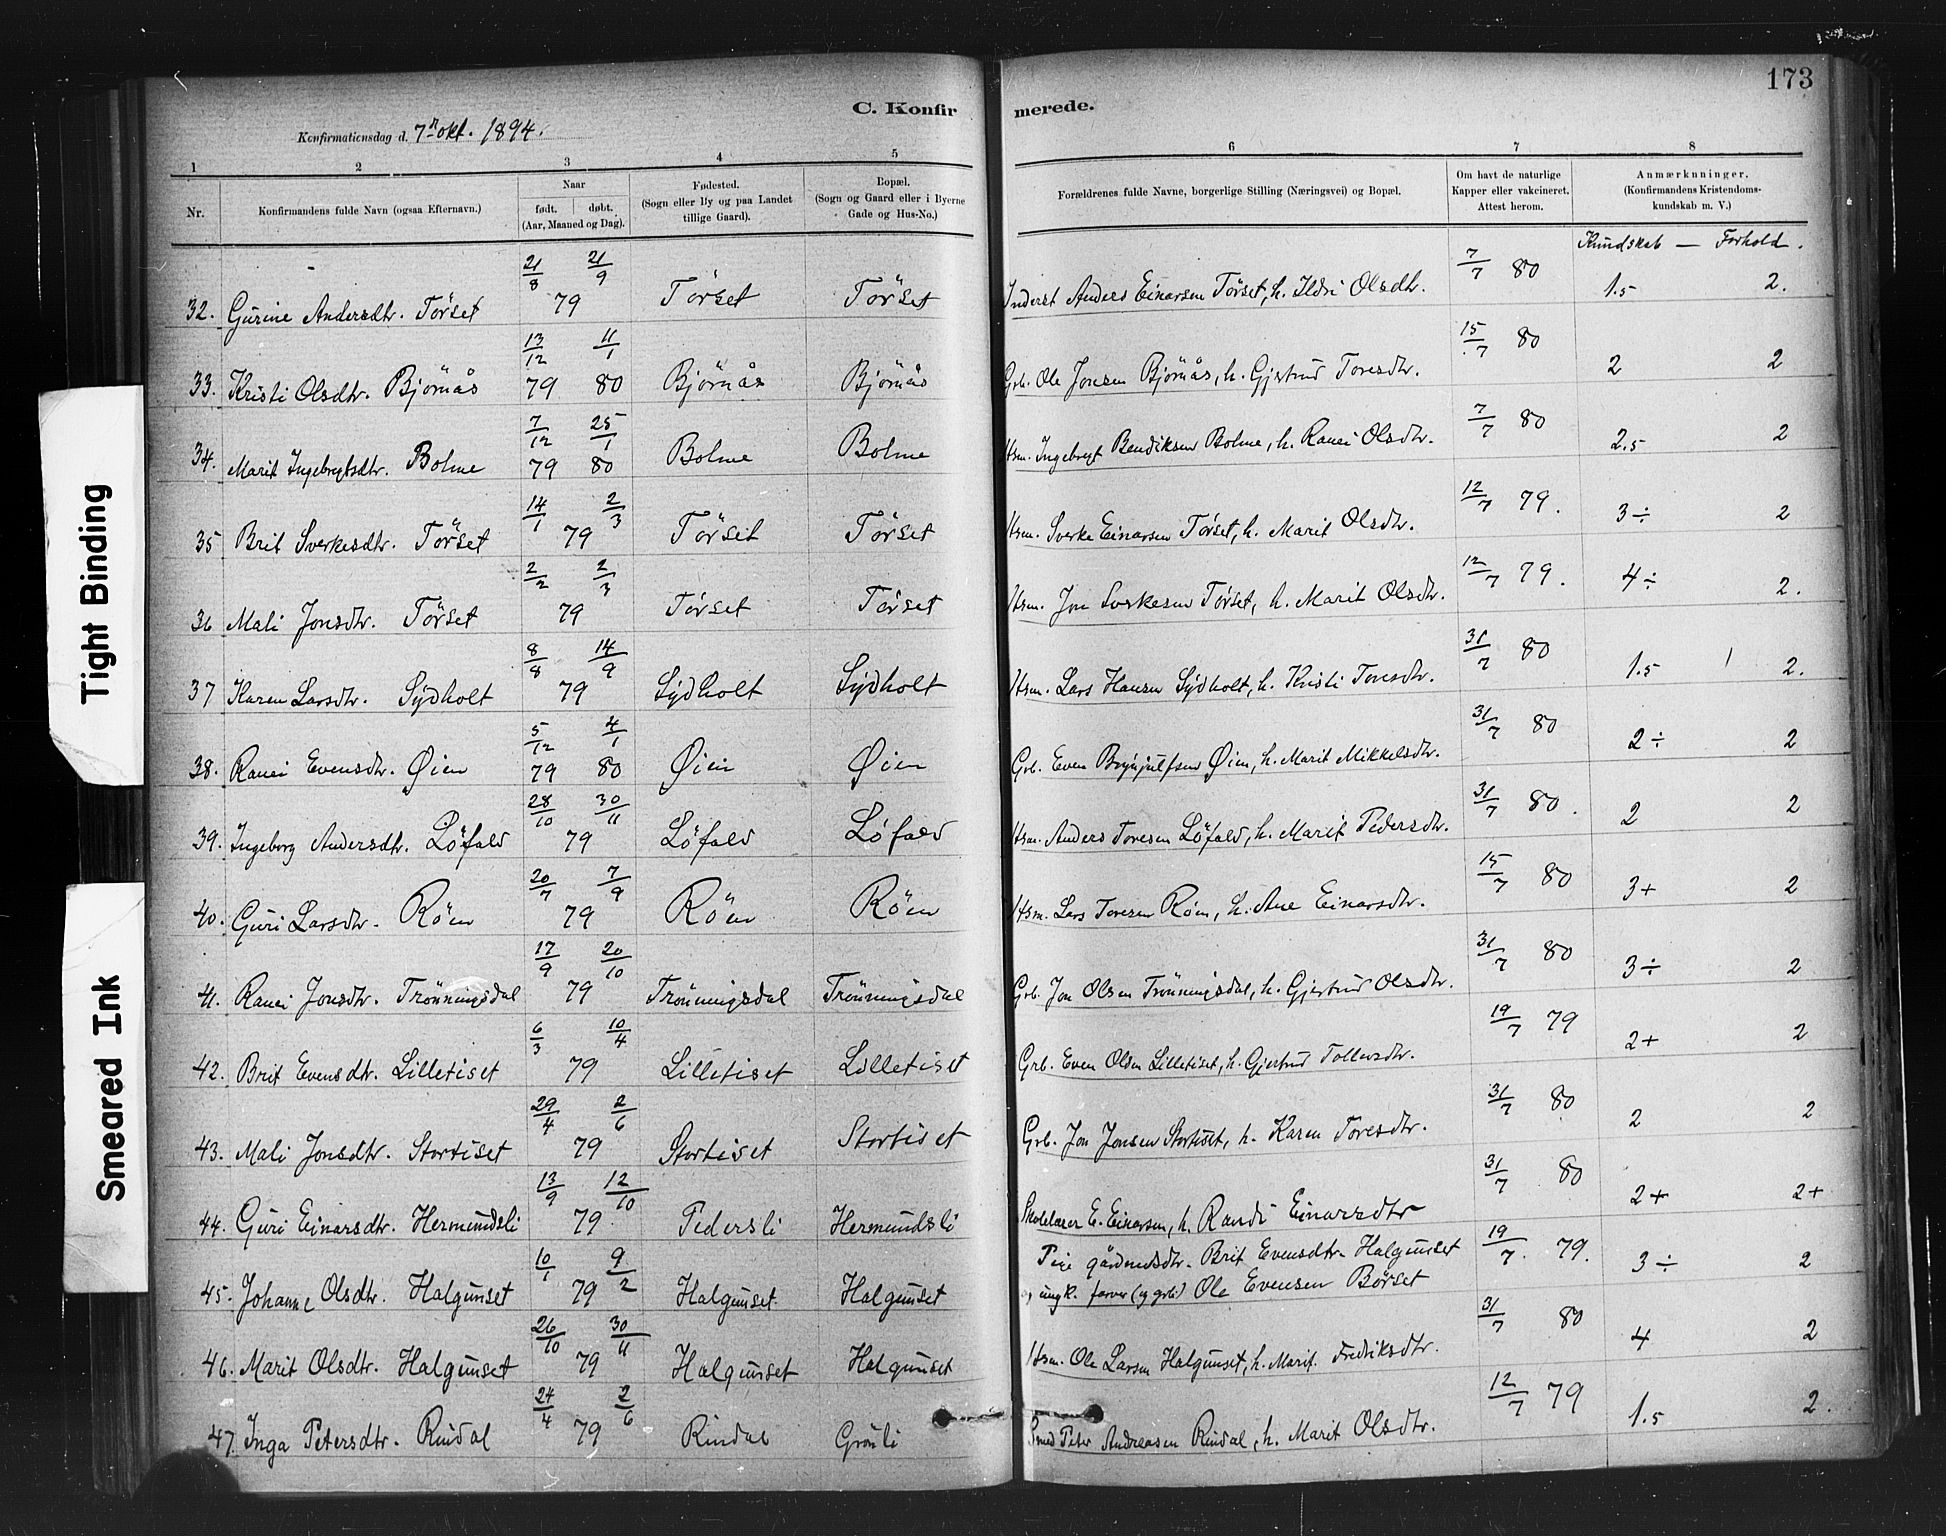 173
C. Konfirmerede.
Konfirmationsdag d. 7de okt. 1894.
1 2 3 4 5 6 7 8
Nr. Konfirmandens fulde Navn (ogsaa Efternavn.) Naar født. døbt. (Aar, Maaned og Dag). Fødested. (Sogn eller By og paa Landet tillige Gaard). Bopæl. (Sogn og Gaard eller i Byerne Gade og Hus-No.) Forældrenes fulde Navne, borgerlige Stilling (Næringsvei) og Bopæl. Om havt de naturlige Kapper eller vakcineret. Attest herom. Anmærkninger. (Konfirmandens Kristendoms-kundskab m. V.)
Kundskab — Forhold.
32. Gurine Andersdtr. Törset 21/8 21/9 79 Törset Törset Inderst Anders Einarsen Törset, h. Ildri Olsdtr. 7/7 80 1.5 2.
33. Kristi Olsdtr. Björnås 13/12 79 11/1 80 Björnås Björnås Grb. Ole Jonsen Björnås, h. Gjertrud Toresdtr. 15/7 80 2 2
34. Marit Ingebrigtsdtr. Bolme 7/12 79 25/1 80 Bolme Bolme Hsm. Ingebrigt Bendiksen Bolme, h. Ranei Olsdtr. 7/7 80 2.5 2
35 Brit Sverkesdtr. Törset 14/1 2/3 79 Törset Törset Hsm. Sverke Einarsen Törset, h. Marit Olsdtr. 12/7 79. 3÷ 2
36 Mali Jonsdtr. Törset 2/2 2/3 79 Törset Törset Hsm. Jon Sverkesen Törset, h. Marit Olsdtr. 12/7 79. 4÷ 2.
37 Karen Larsdtr. Sydholt 8/8 14/9 79 Sydholt Sydholt Hsm. Lars Hansen Sydholt, h. Kristi Toresdtr. 31/7 80 1.5 2.
38. Ranei Evensdtr. Øien 5/12 79 4/1 80 Øien Øien Grb. Even Brynjulfsen Øien, h. Marit Mikkelsdtr. 31/7 80 2÷ 2
39. Ingeborg Andersdtr. Löfald 28/10 30/11 79 Löfald Löfald Hsm. Anders Toresen Löfald, h. Marit Pedersdtr. 31/7 80. 2 2
40. Guri Larsdtr. Röen 20/7 7/9 79 Röen Röen Hsm. Lars Toresen Röen, h. Ane Einarsdtr. 15/7 80 3+ 2
41. Ranei Jonsdtr. Trönningsdal 17/9 20/10 79 Trönningsdal Trönningsdal Grb. Jon Olsen Trönningsdal, h. Gjertrud Olsdtr. 31/7 80 3÷ 2
42. Brit Evensdtr. Lilletiset 6/3 10/4 79 Lilletiset Lilletiset Grb. Even Olsen Lilletiset, h. Gjertrud Tollevsdtr. 19/7 79 2+ 2
43. Mali Jonsdtr. Stortiset 29/4 2/6 79 Stortiset Stortiset Grb. Jon Jonsen Stortiset, h. Karen Toresdtr. 31/7 80 2 2
44. Guri Einarsdtr. Hermundsli 13/9 12/10 79 Pedersli Hermundsli Skolelærer E. Einarsen, h. Randi Einarsdtr 31/7 80 2+ 2+
45. Johanne Olsdtr. Halgunset 10/1 9/2 79 Halgunset Halgunset Pige gårdmdsdtr. Brit Evensdtr. Halgunset 19/7. 79. 3÷ 2
og ungk. farver (og grb.) Ole Evensen Börset
46. Marit Olsdtr. Halgunset 26/10 30/11 79 Halgunset Halgunset Hsm. Ole Larsen Halgunset, h. Marit Fredriksdtr. 31/7 80 4 2
47 Inga Petersdtr. Rindal 24/4 2/6 79 Rindal Grönli Smed Peter Andreasen Rindal, h. Marit Olsdtr. 12/7 79 1.5 2.
Tight Binding
Smeared Ink